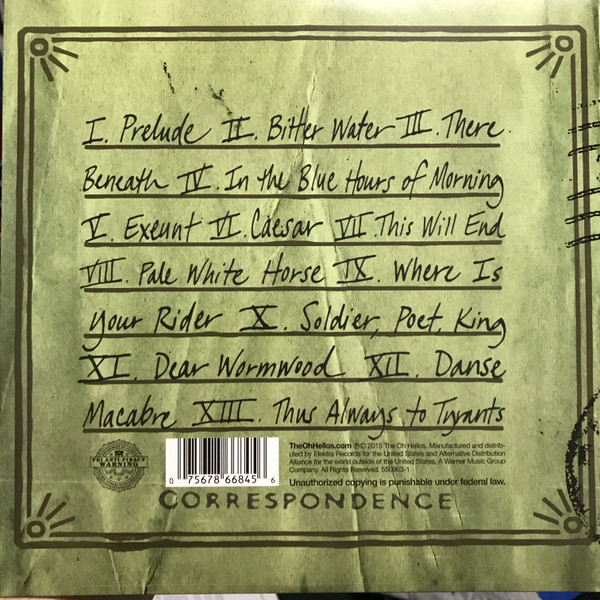 I. Prelude II. Bitter Water III. There
Beneath IV. In the Blue Hours of Morning
V. Exeunt VI. Caesar VII. This Will End
VIII. Pale White Horse IX. Where Is
your Rider X. Soldier, Poet, King
XI. Dear Wormwood XII. Danse
Macabre XIII. Thus Always to Tyrants
FBI ANTI-PIRACY
WARNING
0 75678 66845 6
TheOhHellos.com ℗© 2015 The Oh Hellos. Manufactured and distrib-
uted by Elektra Records for the United States and Alternative Distribution
Alliance for the world outside of the United States. A Warner Music Group
Company. All Rights Reserved. 550903-1
Unauthorized copying is punishable under federal law.
CORRESPONDENCE